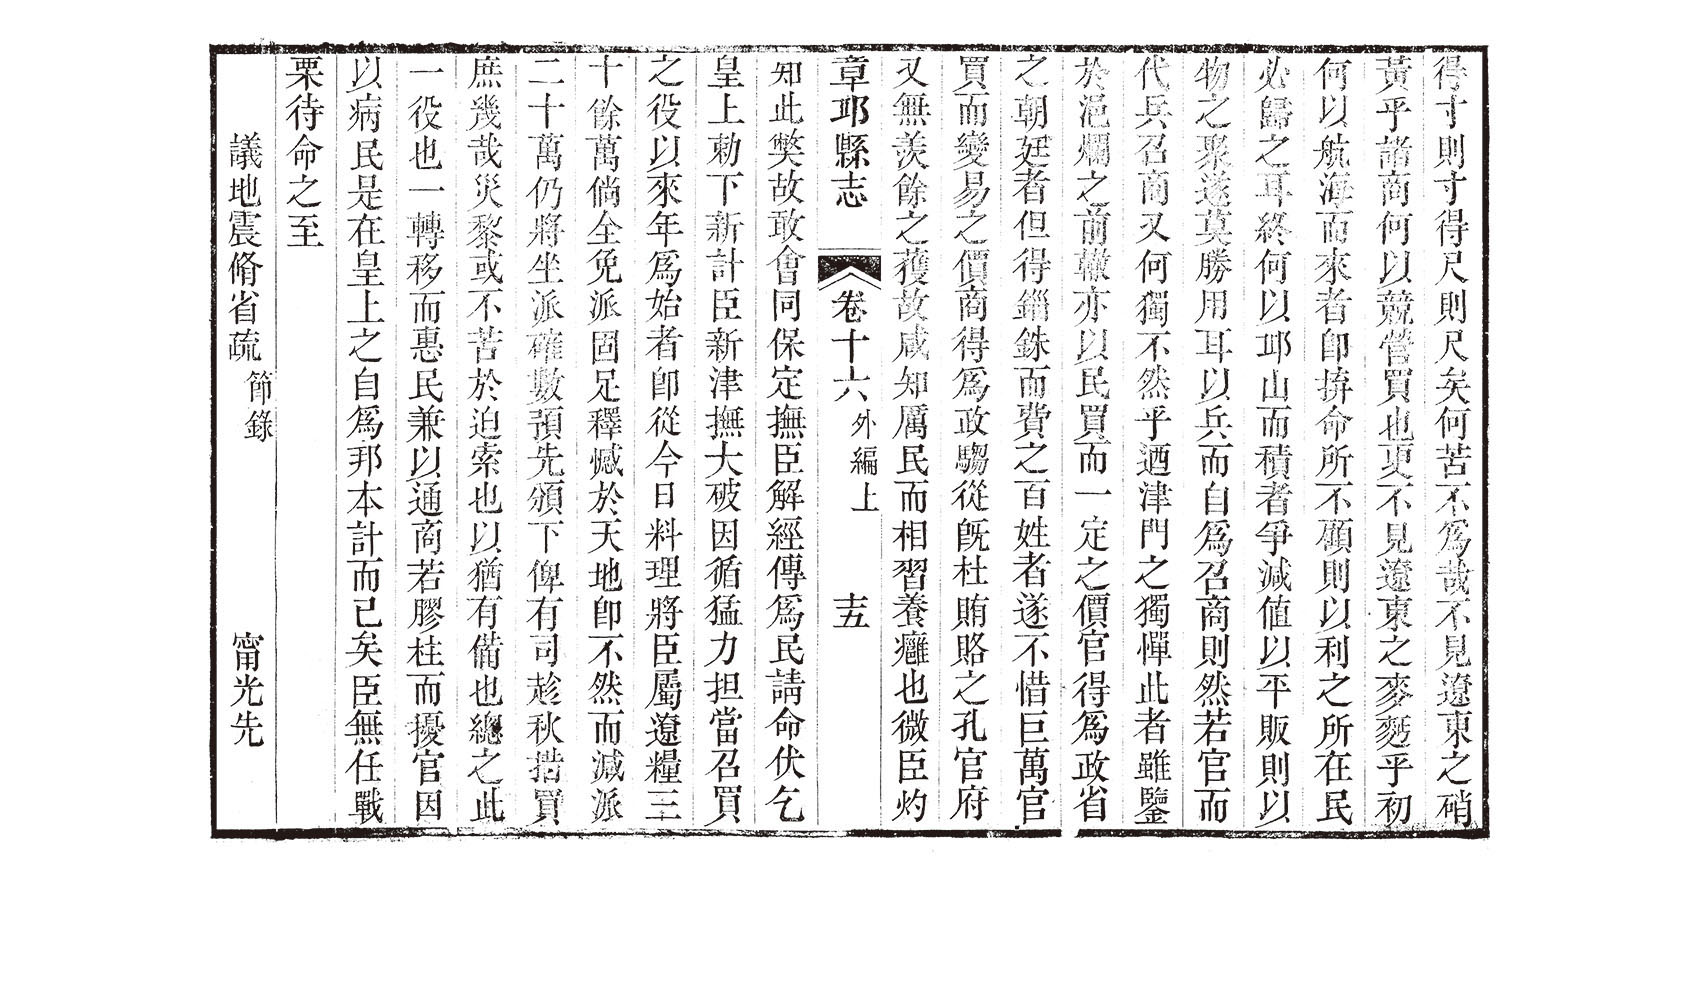 得寸則寸得尺則尺矣何苦不爲哉不見遼東之硝
黃乎諸商何以競營買也更不見遼東之麥麪乎初
何以航海而來者卽捹命所不顧則以利之所在民
必歸之耳終何以邛山而積者爭減値以平販則以
物之聚遂莫勝用耳以兵而自爲召商則然若官而
代兵召商又何獨不然乎迺津門之獨憚此者雖鑒
於浥爛之前轍亦以民買而一定之價官得爲政省
之朝廷者但得錙銖而費之百姓者遂不惜巨萬官
買而變易之價商得爲政騶從旣杜賄賂之孔官府
又無羨餘之獲故咸知厲民而相習養癰也微臣灼
章邱縣志
卷十六
外編上
十五
知此獘故敢會同保定撫臣解經傳爲民請命伏乞
皇上勅下新計臣新津撫大破因循猛力担當召買
之役以來年爲始者卽從今日料理將臣屬遼糧三
十餘萬倘全免派固足釋憾於天地卽不然而減派
二十萬仍將坐派確數預先頒下俾有司趁秋措買
庶幾哉災黎或不苦於迫索也以猶有備也總之此
一役也一轉移而惠民兼以通商若膠柱而擾官因
以病民是在皇上之自爲邦本計而已矣臣無任戰
栗待命之至
議地震脩省疏 節錄 甯光先